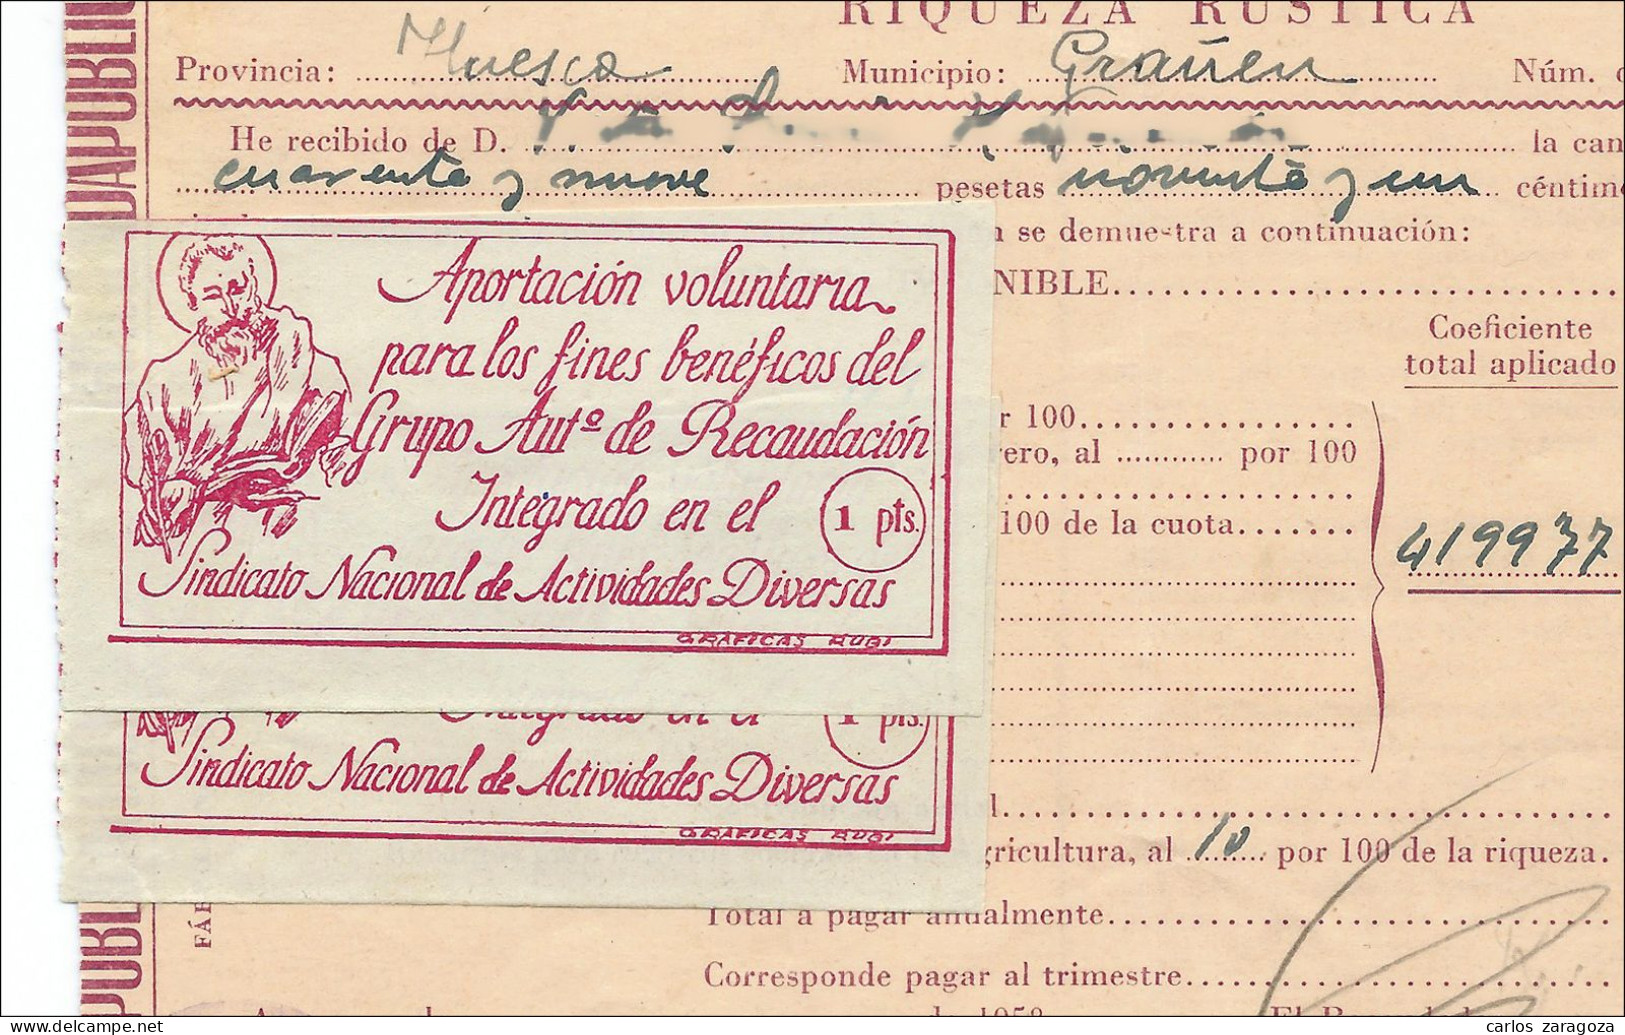 RIQUEZA RUSTICA
Provincia: Huesca Municipio: Grañen Núm.
He recibido de D. la can
cuarenta y nueve pesetas noventa y un céntim
se demuestra a continuación:
NIBLE
Coeficiente
total aplicado
Aportación voluntaria
para los fines benéficos del
Grupo Autº de Recaudación
Integrado en el 1 pts.
Sindicato Nacional de Actividades Diversas
GRAFICAS RUBI
r 100
ero, al por 100
100 de la cuota
419977
Integrado en el 1 pts.
Sindicato Nacional de Actividades Diversas
GRAFICAS RUBI
gricultura, al 10 por 100 de la riqueza.
Total a pagar anualmente
Corresponde pagar al trimestre
de 1958
DAPUBLI
PUBLI
FÁB
carlos zaragoza